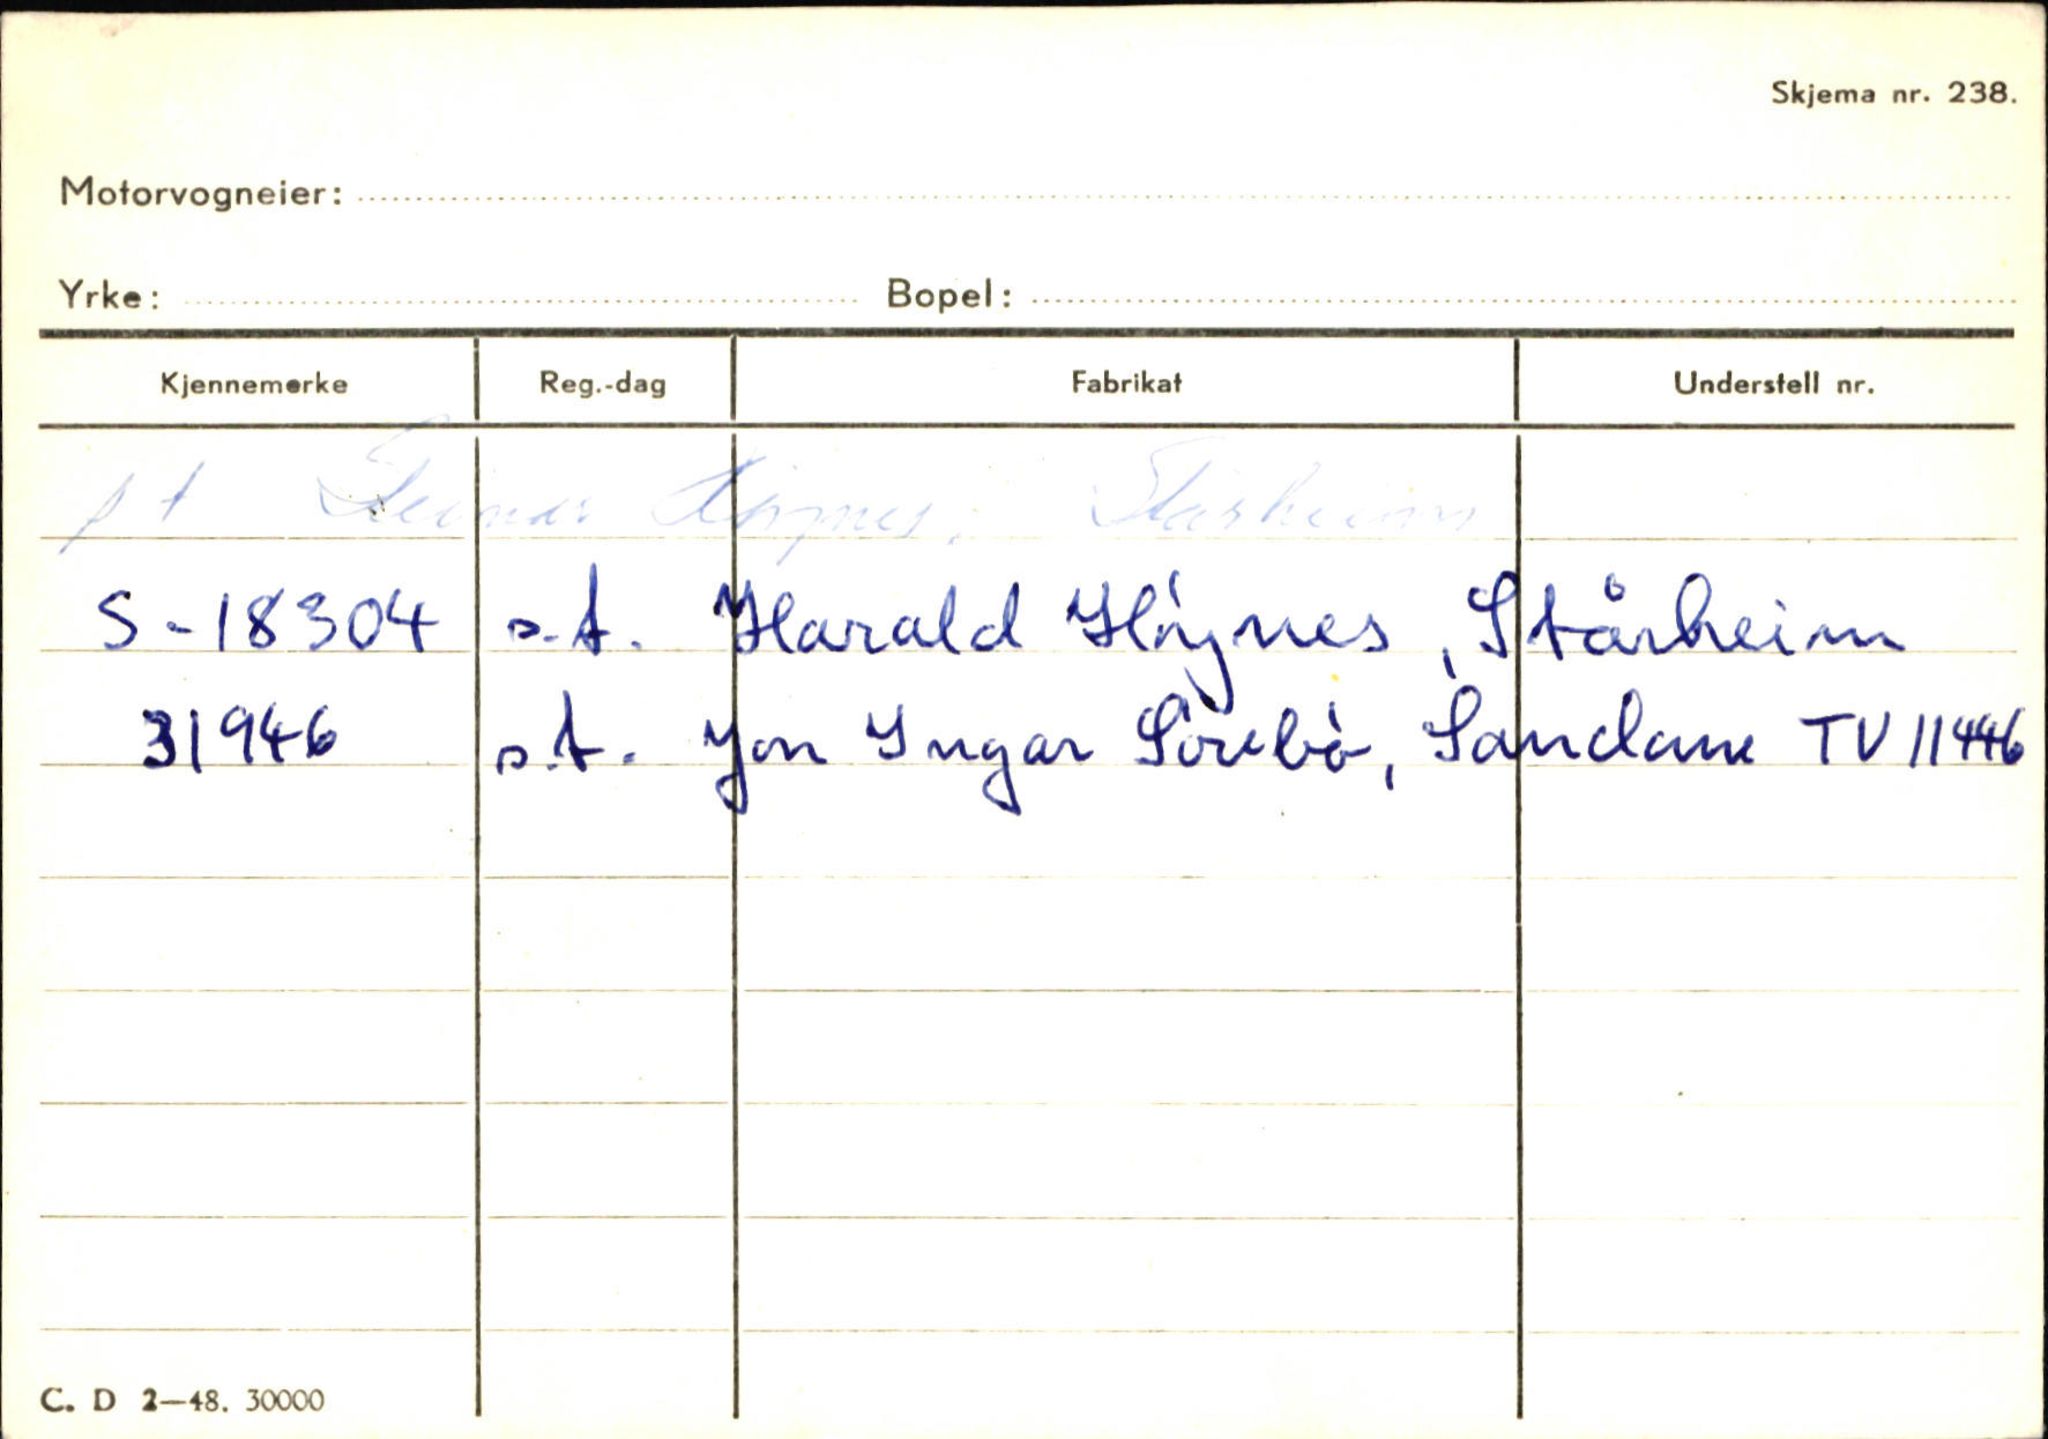 Skjema nr. 238.
Motorvogneier:
Yrke: Bopel:
Kjennemerke Reg.-dag Fabrikat Understell nr.
f t Steinar Høynes, Stårheim
S-18304 s.t. Harald Höynes, Stårheim
31946 s.t. Jon Ingar Sörebö, Sandane TV 11446
C. D 2—48. 30000